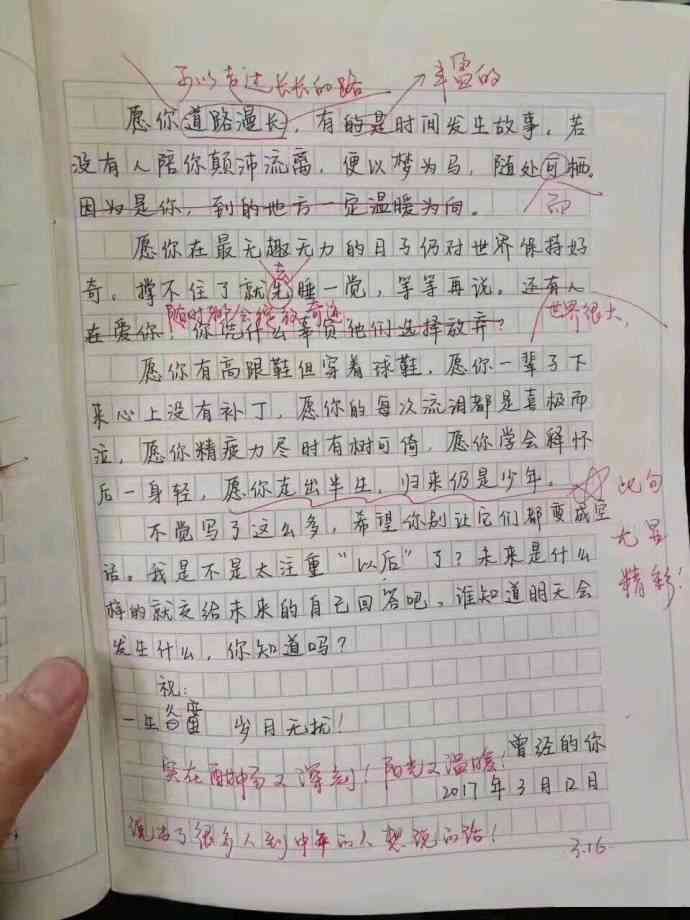 可以走过长长的路
丰富的
愿你道路漫长，有的是时间发生故事。若
没有人陪你颠沛流离，便以梦为马，随处可栖。
因为是你，到的地方一定温暖为向。
而
愿你在最无趣无力的日子仍对世界保持好
去
奇。撑不住了就先睡一觉，等等再说。还有人
随时都会绽放奇迹
世界很大，
在爱你，你凭什么辜负他们选择放弃？
愿你有高跟鞋但穿着球鞋，愿你一辈子下
来心上没有补丁，愿你的每次流泪都是喜极而
泣，愿你精疲力尽时有树可倚，愿你学会释怀
后一身轻，愿你走出半生，归来仍是少年。
此句
尤显
精彩！
不觉写了这么多，希望你别让它们都变成空
话。我是不是太注重“以后”了？未来是什么
样的就交给未来的自己回答吧，谁知道明天会
发生什么，你知道吗？
祝：
一生 岁月无扰！
曾经的你
实在 又深刻！阳光又温暖！
2017年3月12日
说出了很多人到中年的人想说的话！
3.16